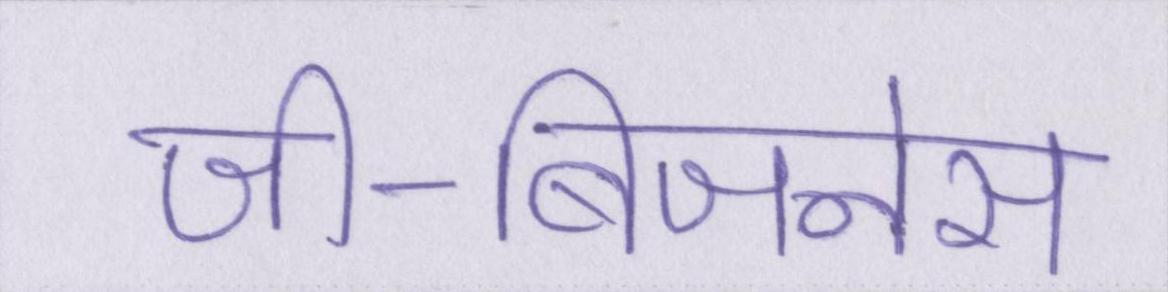 जी-बिजनेस